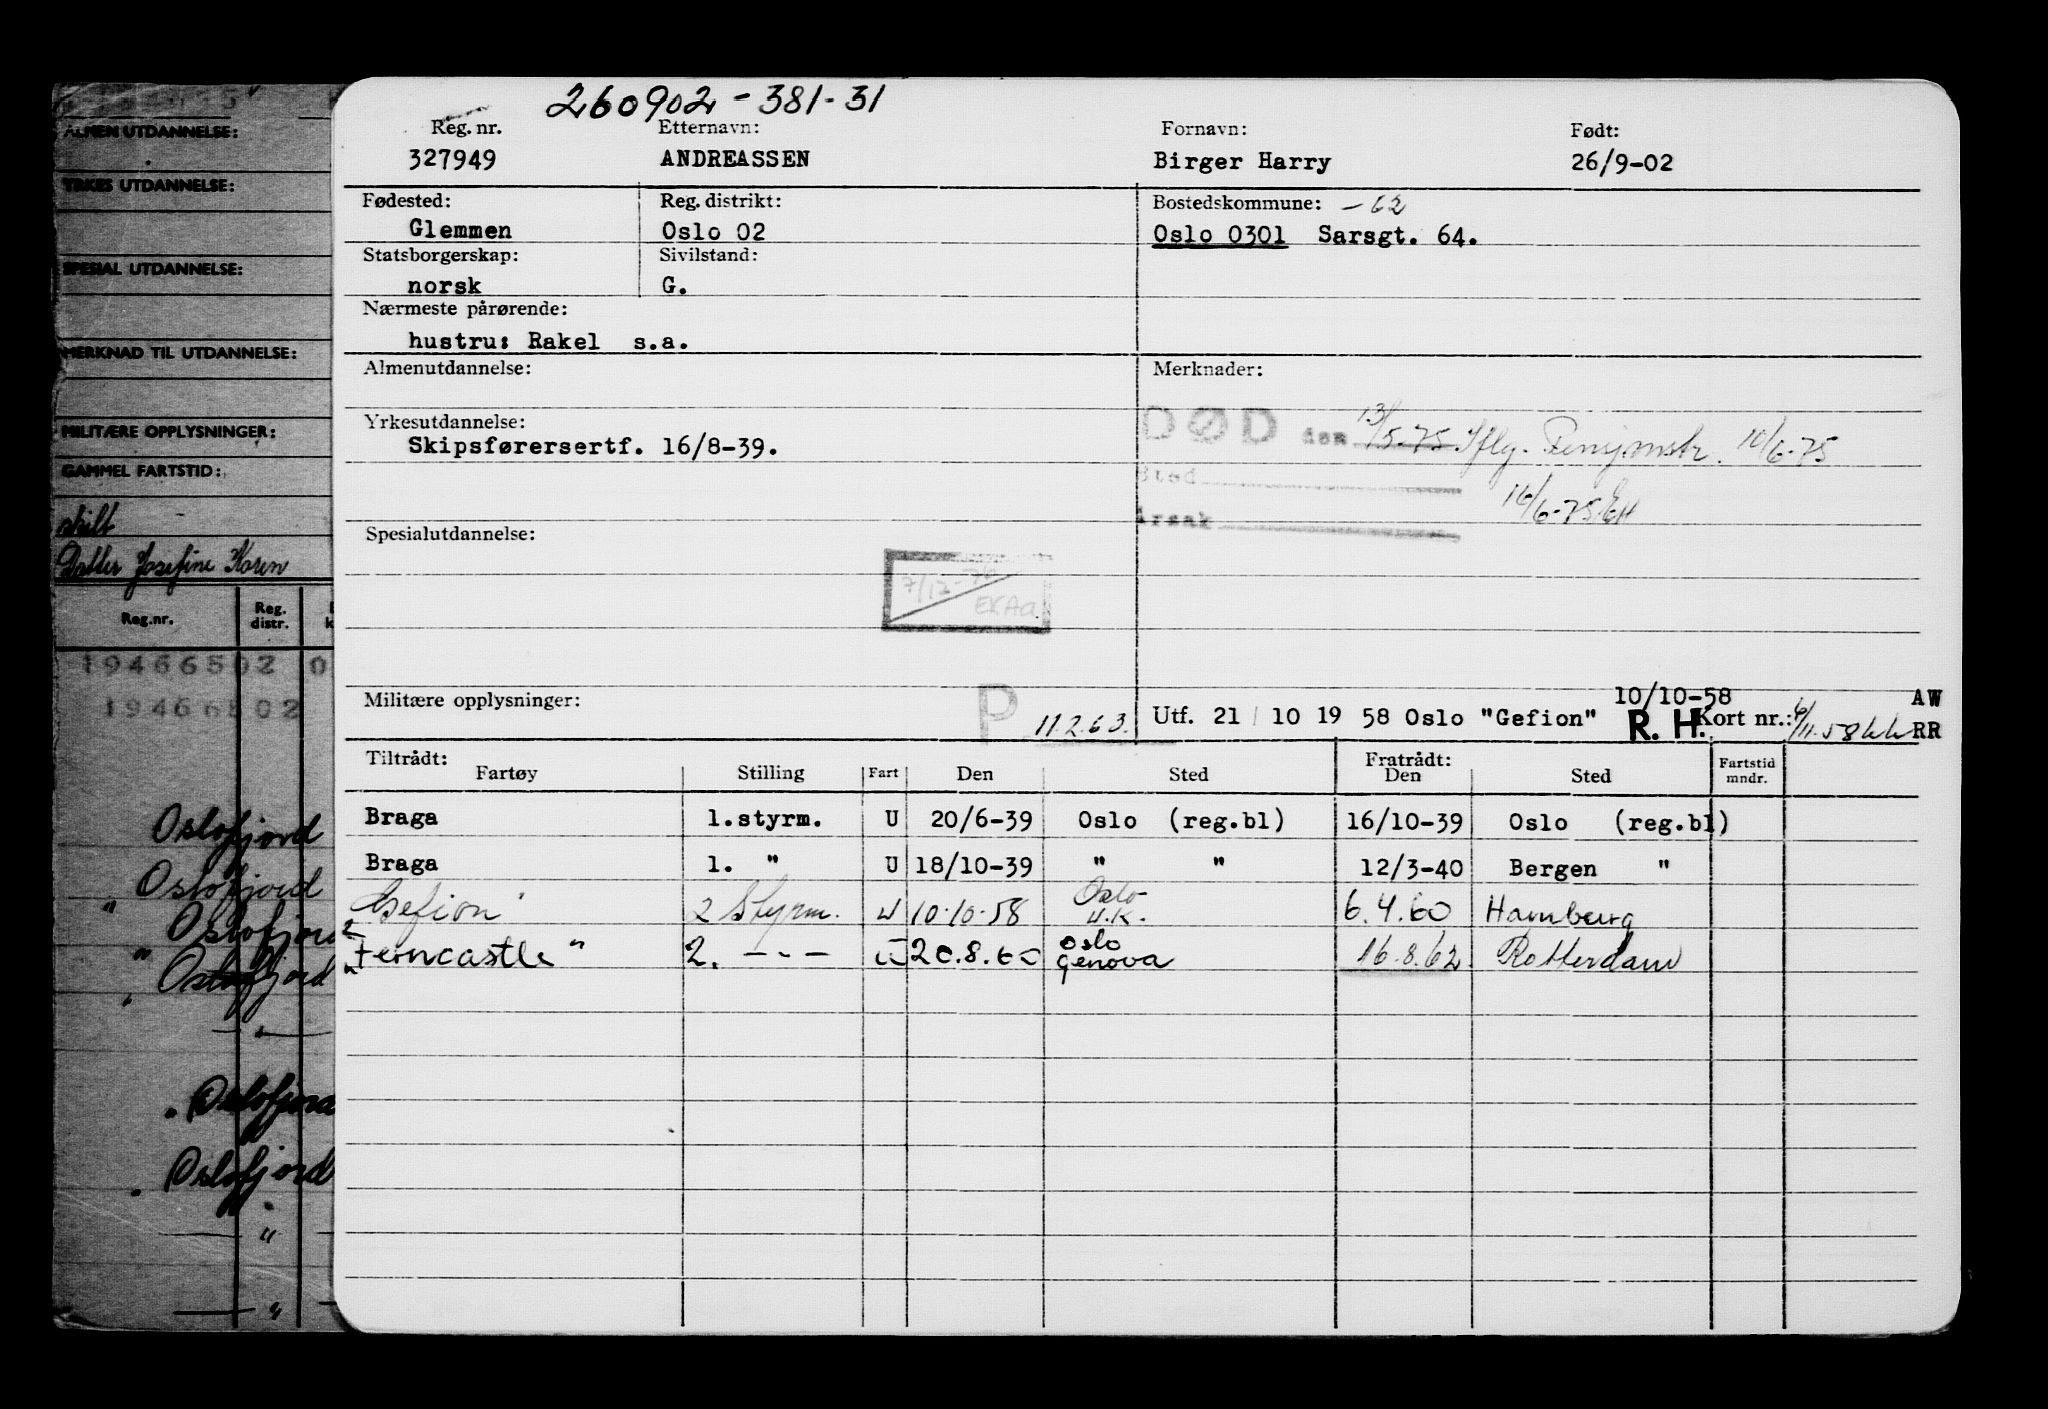 260902-381-31
Reg. nr. Etternavn: Fornavn: Født:
327949 ANDREASSEN Birger Harry 26/9-02
Fødested: Reg. distrikt: Bostedskommune: -62
Glemmen Oslo 02 Oslo 0301 Sarsgt. 64.
Statsborgerskap: Sivilstand:
norsk G.
Nærmeste pårørende:
hustru: Rakel s.a.
Almenutdannelse: Merknader:
Yrkesutdannelse: DØD den 13/5-75 Iflg. Pensjonstr. 10/6-75
Skipsførersertf. 16/8-39.
Sted
16/6-75 EH
Årsak
Spesialutdannelse:
7/12-76
EKAa
Militære opplysninger: P 11.2.63.
10/10-58 AW
Utf. 21/10 19 58 Oslo "Gefion" R. H. Kort nr.: 6/11-58 RR
Tiltrådt: Fratrådt:
Fartøy Stilling Fart Den Sted Den Sted Fartstid mndr.
Braga 1.styrm. U 20/6-39 Oslo (reg.bl) 16/10-39 Oslo (reg.bl)
Braga 1. " U 18/10-39 " " 12/3-40 Bergen "
"Gefion" 2 Styrm. U 10.10.58 Oslo U.K. 6.4.60 Hamburg
"Ferncastle" 2. --- U 20.8.60 Oslo Genova 16.8.62 Rotterdam
ALMEN UTDANNELSE:
YRKES UTDANNELSE:
SPESIAL UTDANNELSE:
MERKNAD TIL UTDANNELSE:
MILITÆRE OPPLYSNINGER:
GAMMEL FARTSTID:
skilt
Datter Josefine Karen
Reg.nr. Reg. distr.
19466502 0
19466802
Oslofjord
Oslofjord
" Oslofjord
" Oslofjord
"
" Oslofjord
" Oslofjord
"
"